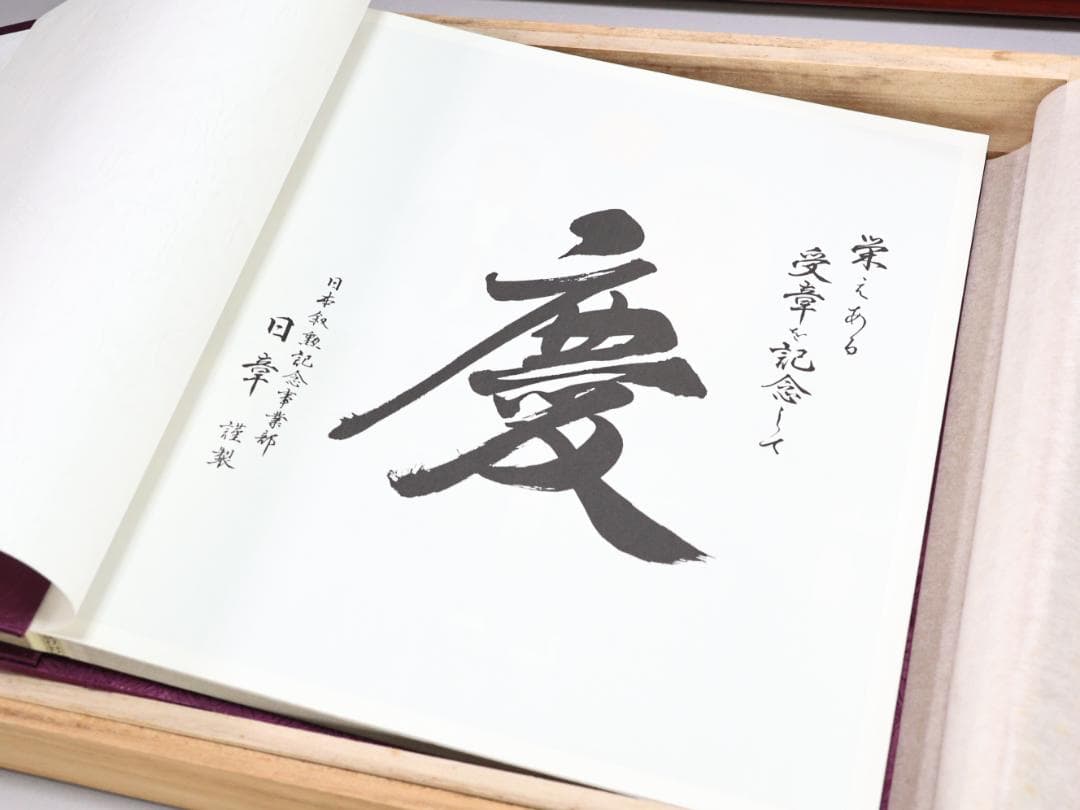 栄えある
受章を記念して
慶
日本叙勲記念事業部
日章
謹製